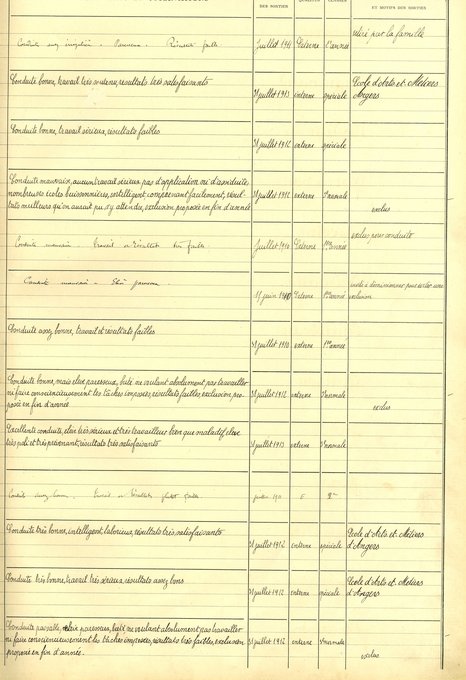 DES SORTIES
CLASSES
ET MOTIFS DES SORTIES
Conduite assez irrégulière. Paresseux. Résultats faibles
Juillet 1911
Externe
1e année
retiré par la famille
Conduite bonne, travail très soutenu, résultats très satisfaisants
31 juillet 1913
interne
spéciale
Ecole d'Arts et Métiers
Angers
Conduite bonne, travail sérieux, résultats faibles
31 juillet 1912
externe
spéciale
Conduite mauvaise, aucun travail sérieux pas d'application ni d'assiduité
nombreuses écoles buissonnières, intelligent comprenant facilement, résul-
tats meilleurs qu'on aurait pu s'y attendre, exclusion proposée en fin d'année
31 juillet 1912
externe
3e normale
exclus
Conduite mauvaise. Travail et résultats très faibles
Juillet 1910
Externe
1ère année
exclus pour conduite
Conduite mauvaise - Très paresseux
17 juin 1910
Externe
1ère année
exclusion
Conduite assez bonne, travail et résultats faibles
31 juillet 1910
externe
1ère année
Conduite bonne, mais élève paresseux, buté ne voulant absolument pas travailler
ni faire consciencieusement les tâches imposées, résultats faibles, exclusion pro-
posée en fin d'année
31 juillet 1912
externe
3e normale
exclus
Excellente conduite, élève très sérieux et très travailleur bien que maladif, élève
très poli et très prévenant, résultats très satisfaisants
31 juillet 1913
externe
3e normale
Conduite assez bonne. Travail et résultats plutôt faibles
juillet 1911
E
2e
Conduite très bonne, intelligent, laborieux, résultats très satisfaisants
31 juillet 1912
externe
spéciale
Ecole d'Arts et Métiers
d'Angers
Conduite très bonne, travail très sérieux, résultats assez bons
31 juillet 1912
interne
spéciale
Ecole d'Arts et Métiers
d'Angers
Conduite passable, élève paresseux, buté ne voulant absolument pas travailler
ni faire consciencieusement les tâches imposées, résultats très faibles, exclusion
proposée en fin d'année
31 juillet 1912
externe
3e normale
exclus